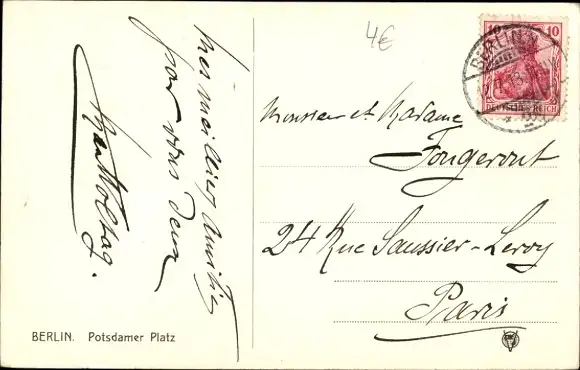 4€
10 10
BERLIN.W.
DEUTSCHES REICH
Mes meilleurs Amitiés
pour vous deux
Monsieur et Madame
Fougerout
24 Rue Saussier-Leroy
Paris
BERLIN. Potsdamer Platz